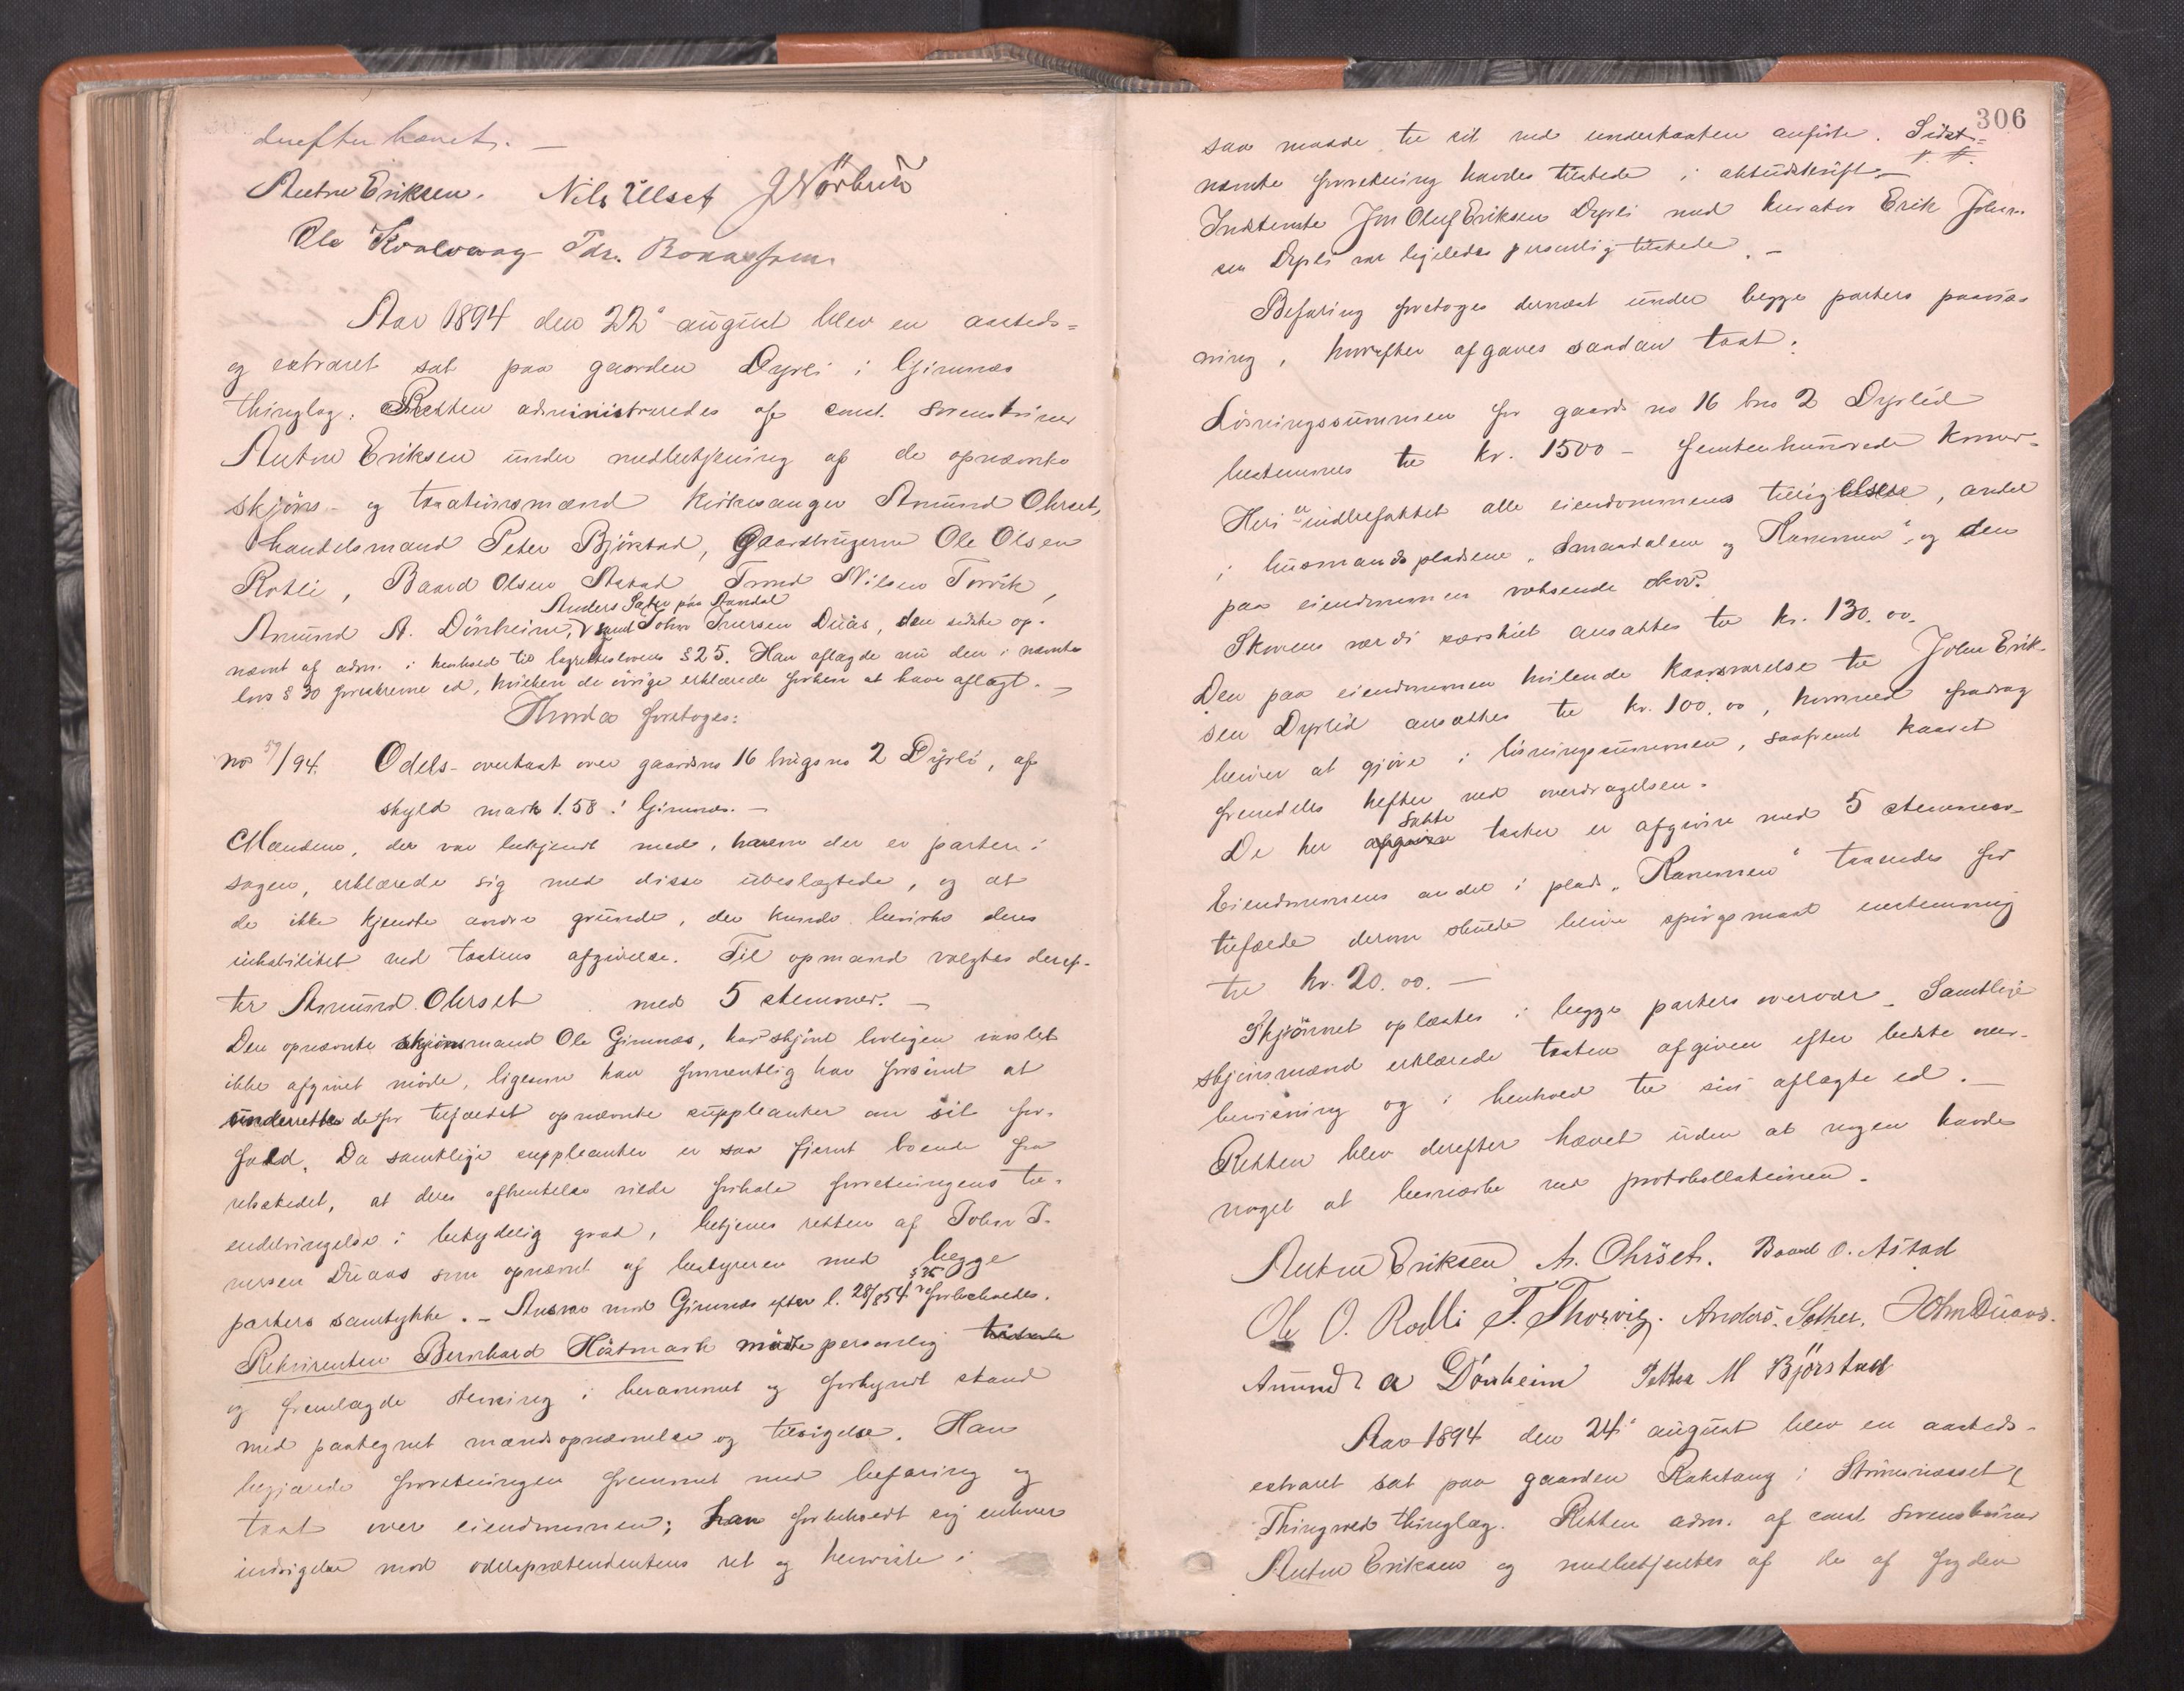 derefter hævet. —
Anton Eriksen. Nils Ullset J Nörbech
Ole Kvalvaag Pdr. Bonas
Aar 1894 den 22de august blev en aasteds=
og extraret sat paa gaarden Dyrli i Gimnæs
thinglag. Retten administreredes af const. sorenskriver
Anton Eriksen under medbetjening af de opnævnte
skjöns- og taxationsmænd kirkesanger Amund Ohrset,
handelsmand Peter Bjørstad, gaardbrugerne Ole Olsen
Rotli, Baard Olsen Astad Trond Nilsen Torvik,
Anders Sæter paa Aandal
Amund A. Dönheim, V samt John Iversen Duås, den sidste op-
nævnt af adm. i henhold til lagrettelovens § 25. Han aflagde nu den i nævnte
lovs § 30 foreskrevne ed, hvilken de övrige erklærede forhen at have aflagt. —
Hvorda foretoges:
no 59/94. Odels- overtaxt over gaardsno 16 brugsno 2 Dÿrli, af
skyld mark 1.58 i Gimnæs. —
Mændene, der var bekjendt med, hvem der er parter i
sagen, erklærede sig med disse ubeslægtede, og at
de ikke kjendte andre grunde, der kunde bevirke deres
inhabilitet ved taxtens afgivelse. Til opmand valgtes deref-
ter Amund Ohrset med 5 stemmer. —
Den opnævnte skjönsmand Ole Gimnæs, har skjönt lovligen varslet
ikke afgivet möde, ligesom han formentlig har forsömt at
underrette de for tilfældet opnævnte suppleanter om sit for-
fald. Da samtlige suppleanter er saa fjernt boende fra
retsstedet, at deres afhentelse vilde forhale forretningens til-
endebringelse i betydelig grad, betjenes retten af John I-
versen Duaas som opnævnt af bestyreren med begge
parters samtykke. – Ansvar mod Gimnæs efter l. 28/8 54 § 35 forbeholdes.
Rekvirenten Bernhard Höstmark mødte personlig
og fremlagde stevning i beramet og forkyndt stand
med paategnet mandsopnævnelse og tilsigelse. Han
begjærede forretningen fremmet med befaring og
taxt over eiendommen; han forbeholdt sig enhver
indsigelse mod odelsprætendentens ret og henviste i
306
saa maade til sit ved undertaxten anførte. Sidst=
nævnte forretning havdes tilstede i aktudskrift. —
Indstevnte Jon Oluf Eriksen Dyrli med kurator Erik John-
sen Dyrli var ligeledes personlig tilstede. —
Befaring foretoges dernæst under begge parters paavis-
ning, hvorefter afgaves saadan taxt:
Løsningssummen for gaards no 16 bno 2 Dyrlid
bestemmes til kr. 1500 – femtenhundrede kroner-
Heri er indbefattet alle eiendommens tilligelser, andel
i husmandspladsene „Smaadalene og Rammen“, og den
paa eiendommen voksende skov.
Skovens værdi særskilt ansattes til kr. 130.00.
Den paa eiendommen hvilende kaarsvarelse til John Erik-
sen Dyrlid ansattes til kr. 100.00, hvormed fradrag
bliver at gjøre i løsningssummen, saafremt kaaret
fremdeles hefter ved overdragelsen.
satte
De her afgivne taxter er afgivne med 5 stemmer-
Eiendommens andel i plads „Rammen“ taxeredes for
tilfælde derom skulde blive spörgsmaal enstemmig
til kr. 20.00. —
Skjönnet oplæstes i begge parters overvær. Samtlige
skjönsmænd erklærede taxten afgiven efter bedste over-
bevisning og i henhold til sin aflagte ed. —
Retten blev derefter hævet uden at nogen havde
noget at bemærke ved protokollationen.
Anton Eriksen A. Ohrset. Baard O. Astad
Ole O. Rodli T. Thorvig. Anders. Sæther. John Duaas.
Amund A Dönheim Petter M Björstad
Aar 1894 den 24de august blev en aasteds-
extraret sat paa gaarden Rakvaag i Strömsnæsset
Thingvold thinglag. Retten adm. af const sorenskriver
Anton Eriksen og medbetjentes af de af fogden